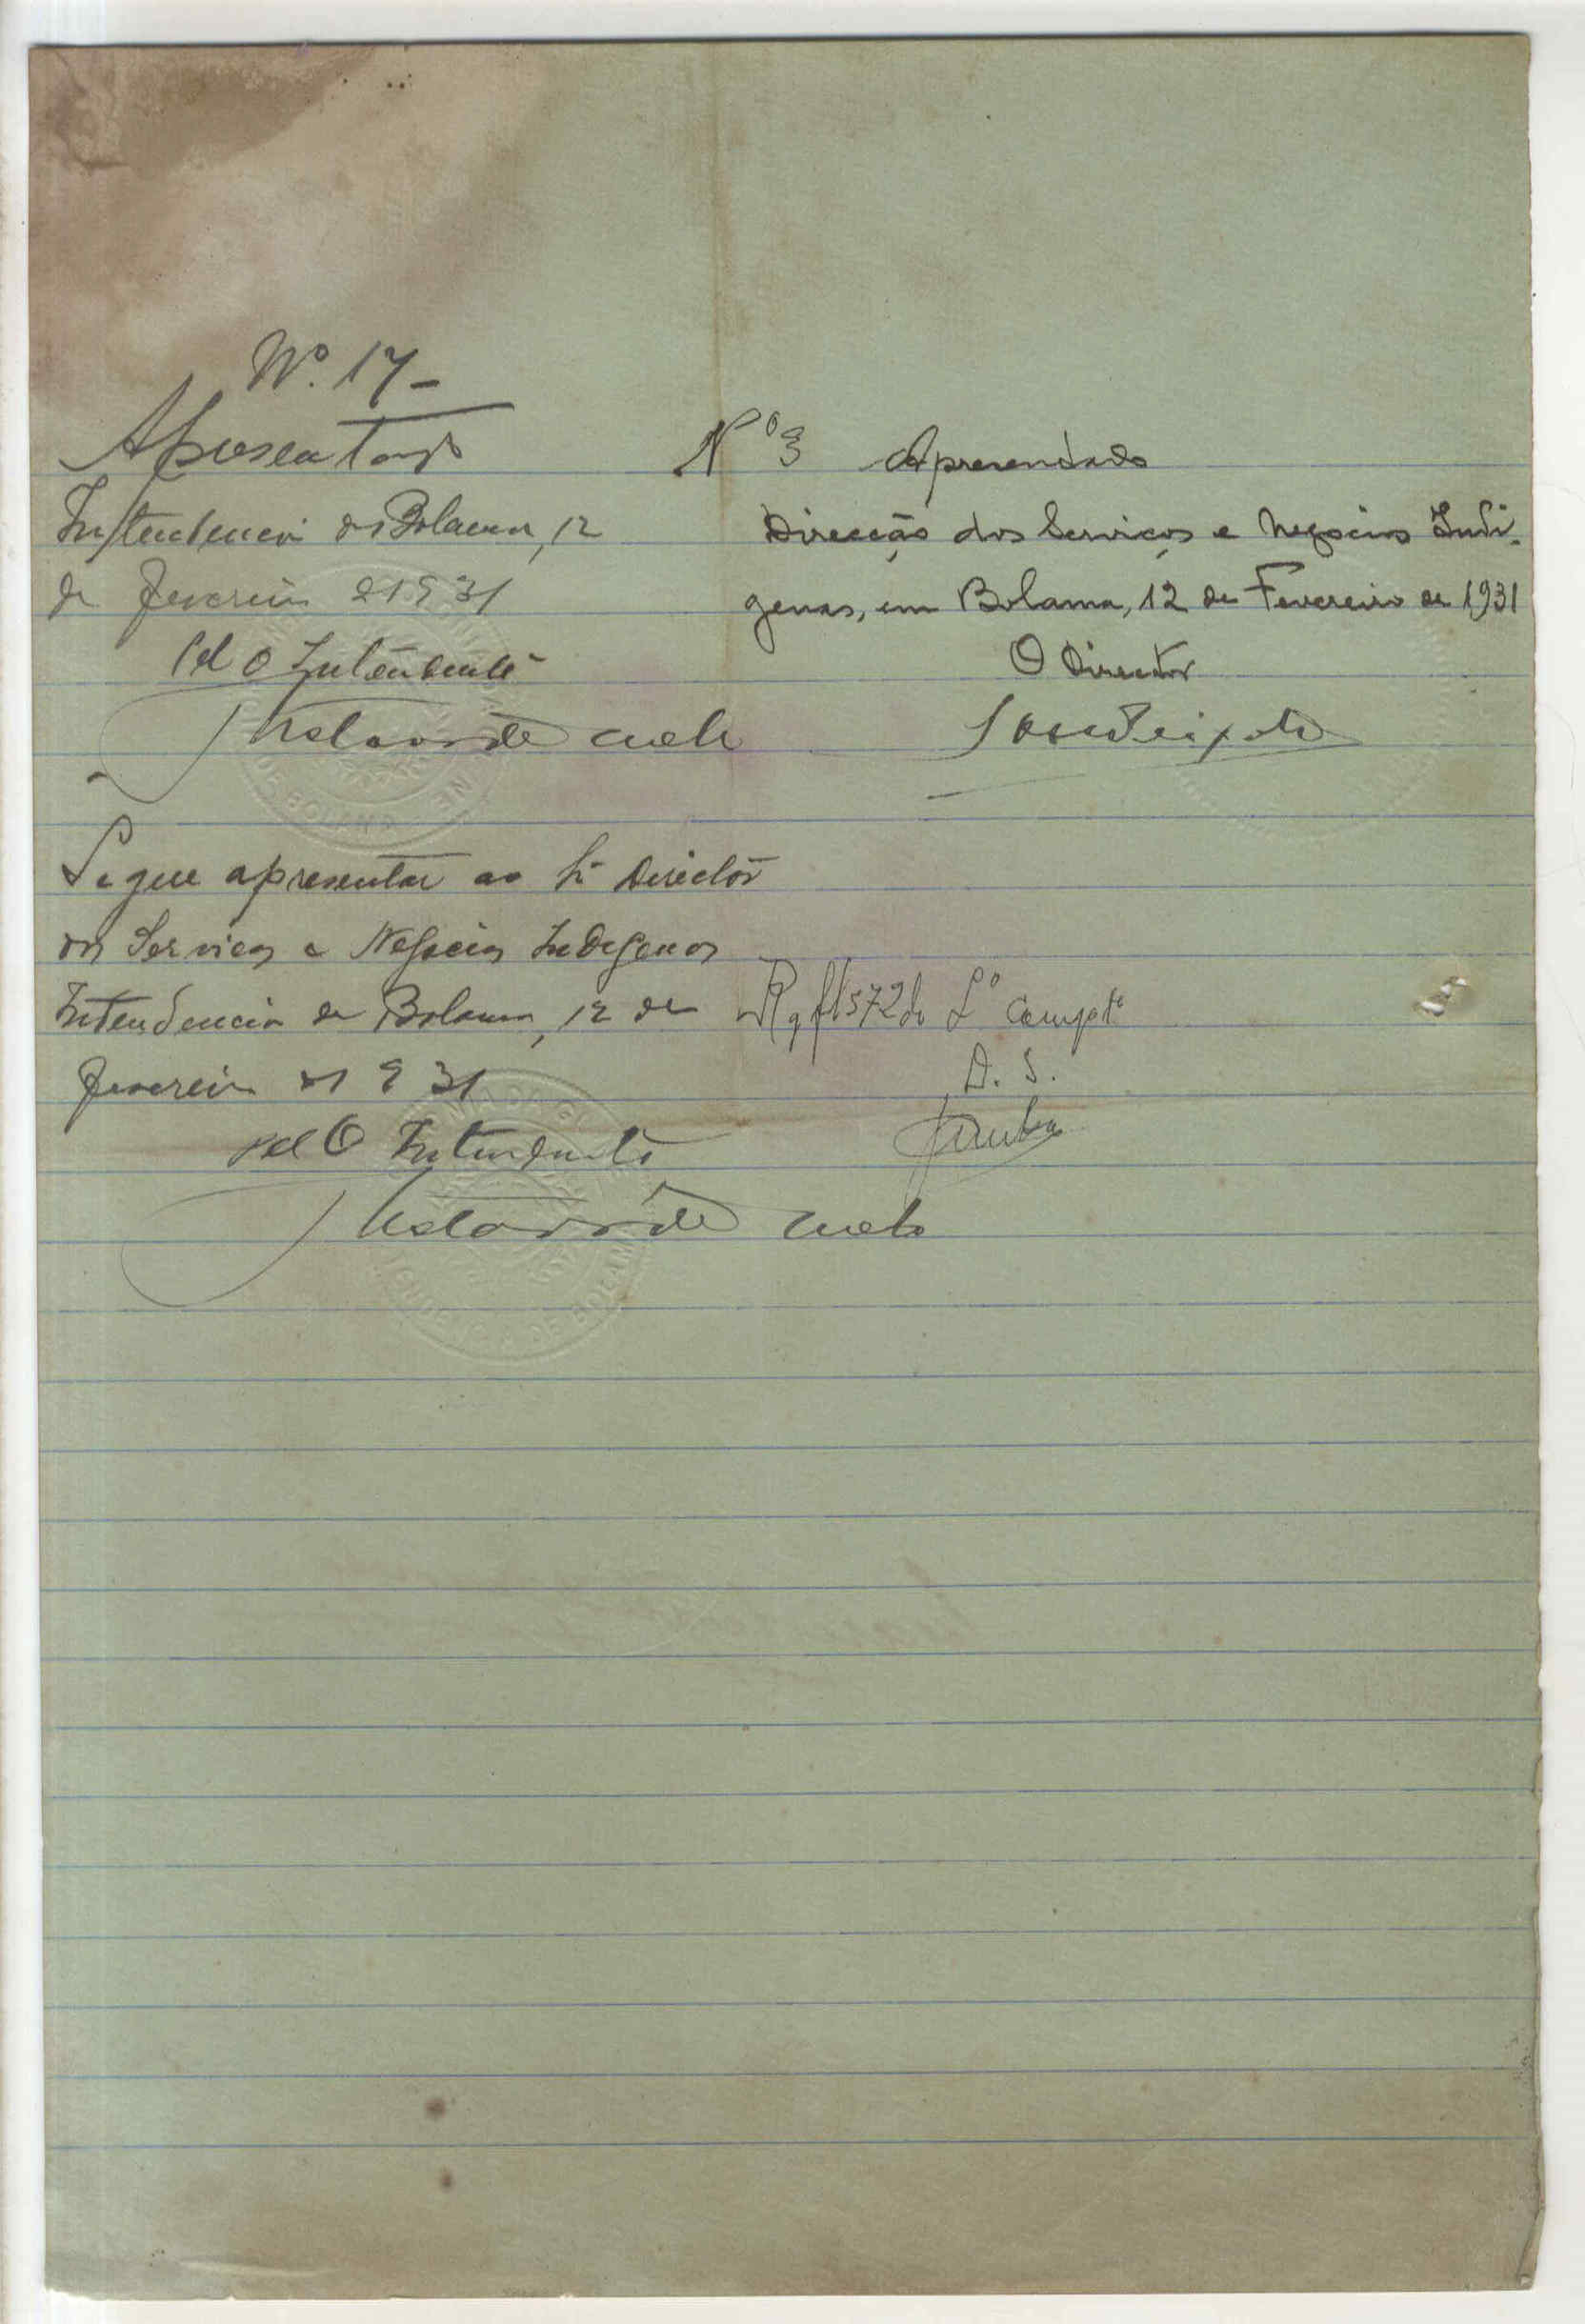 Nº. 17-
Apresentado
Intendencia de Bolama, 12
de Fevereiro de 1931
Pel O Intendente
de Melo
Segue apresentar ao Sr. Director
dos Serviços e Negocios Indigenas
Intendencia de Bolama, 12 de
Fevereiro de 1931
Pel O Intendente
de Melo
Nº 3 Apresentado
Direcção dos Serviços e Negocios Indi-
genas, em Bolama, 12 de Fevereiro de 1931
O Director
Rg fl 572 do Lº compte
D. S.